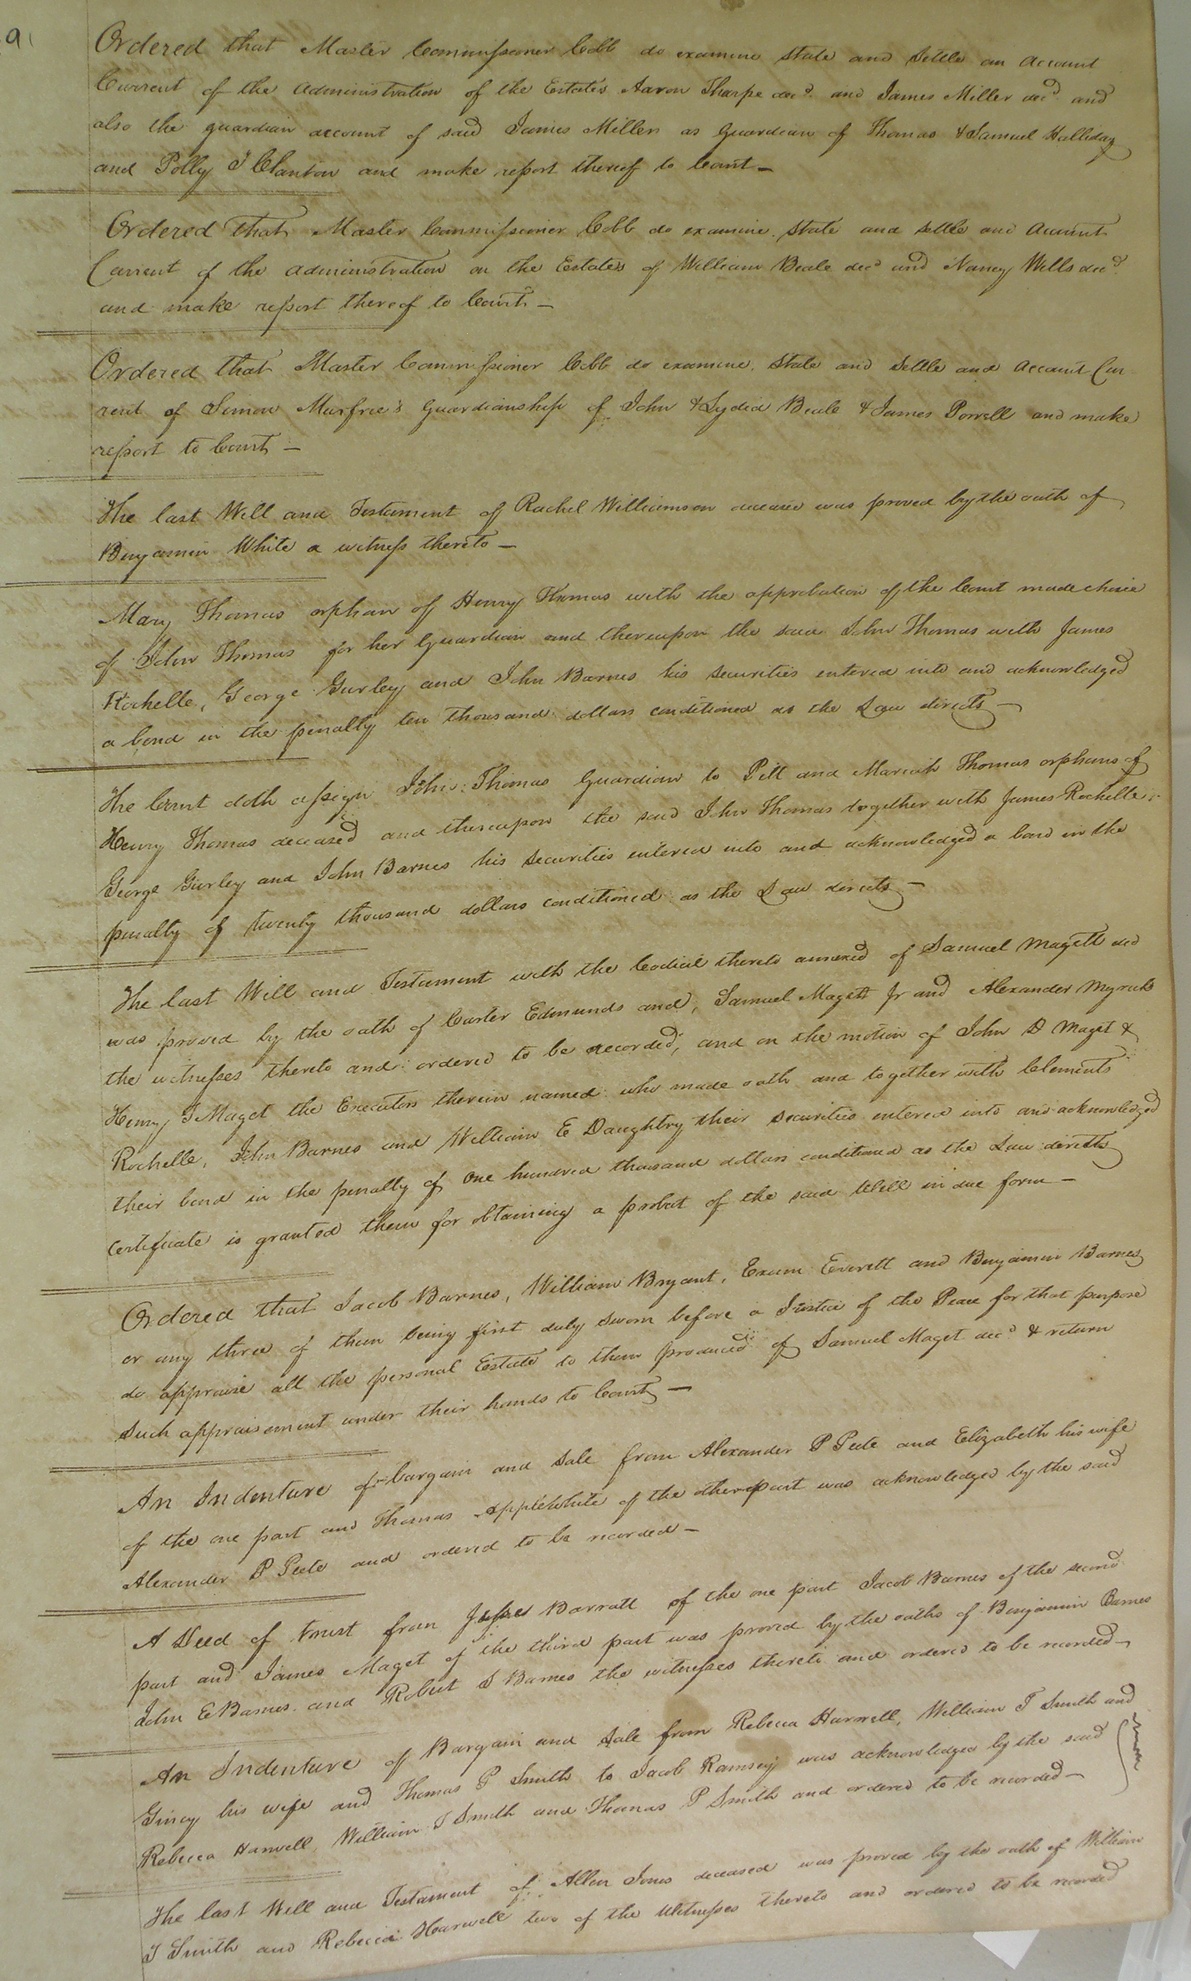 9
Ordered that Master Commissioner Cobb do examine state and settle an account
Current of the administration of the Estates Aaron Tharpe decd. and James Miller decd and
also the guardian account of said James Miller as guardian of Thomas & Samuel Halliday
and Polly I Clanton and make report thereof to Court —
Ordered that Master Commissioner Cobb do examine, state and settle and account
Current of the administration on the Estates of William Beale decd and Nancy Wills decd.
and make report thereof to Court —
Ordered that Master Commissioner Cobb do examine, state and settle and account Cur
rent of Simon Murfree's guardianship of John & Lydia Beale & James Powell and make
report to Court —
The last Will and Testament of Rachel Williamson deceased was proved by the oath of
Benjamin White a witness thereto —
Mary Thomas orphan of Henry Thomas with the approbation of the Court made choice
of John Thomas for her guardian and thereupon the said John Thomas with James
Rochelle, George Gurley and John Barnes his securities entered into and acknowledged
a bond in the penalty ten thousand dollars conditioned as the Law directs —
The Court doth assign John Thomas Guardian to Pitt and Mariah Thomas orphans of
Henry Thomas deceased and thereupon the said John Thomas together with James Rochelle,
George Gurley and John Barnes his securities entered into and acknowledged a bond in the
penalty of twenty thousand dollars conditioned as the Law directs —
The last Will and Testament with the Codicil thereto annexed of Samuel Magett decd
was proved by the oath of Carter Edmunds and, Samuel Magett Jr and Alexander Myrick
the witnesses thereto and ordered to be recorded; and on the motion of John D Maget &
Henry T Maget the Executors therein named who made oath and together with Clements
Rochelle, John Barnes and William E Daughtry their securities entered into and acknowledged
their bond in the penalty of one hundred thousand dollars conditioned as the Law directs
certificate is granted them for obtaining a probat of the said Will in due form —
Ordered that Jacob Barnes, William Bryant, Exum Everett and Benjamin Barnes
or any three of them being first duly sworn before a Justice of the Peace for that purpose
do appraise all the personal Estate to them produced of Samuel Maget decd & return
such appraisement under their hands to Court —
An Indenture of bargain and sale from Alexander P Peete and Elizabeth his wife
of the one part and Thomas Applewhite of the other part was acknowledged by the said
Alexander P Peete and ordered to be recorded —
A Deed of trust from Jesse Barratt of the one part Jacob Barnes of the second
part and James Maget of the third part was proved by the oaths of Benjamin Barnes
John E Barnes and Robert S Barnes the witnesses thereto and ordered to be recorded —
An Indenture of Bargain and sale from Rebecca Harwell, William T Smith and
Gincy his wife and Thomas P Smith to Jacob Ramsey was acknowledged by the said
Rebecca Harwell William T Smith and Thomas P Smith and ordered to be recorded —
The last Will and Testament of Allen Jones deceased was proved by the oath of William
T Smith and Rebecca Hearwell two of the witnesses thereto and ordered to be recorded